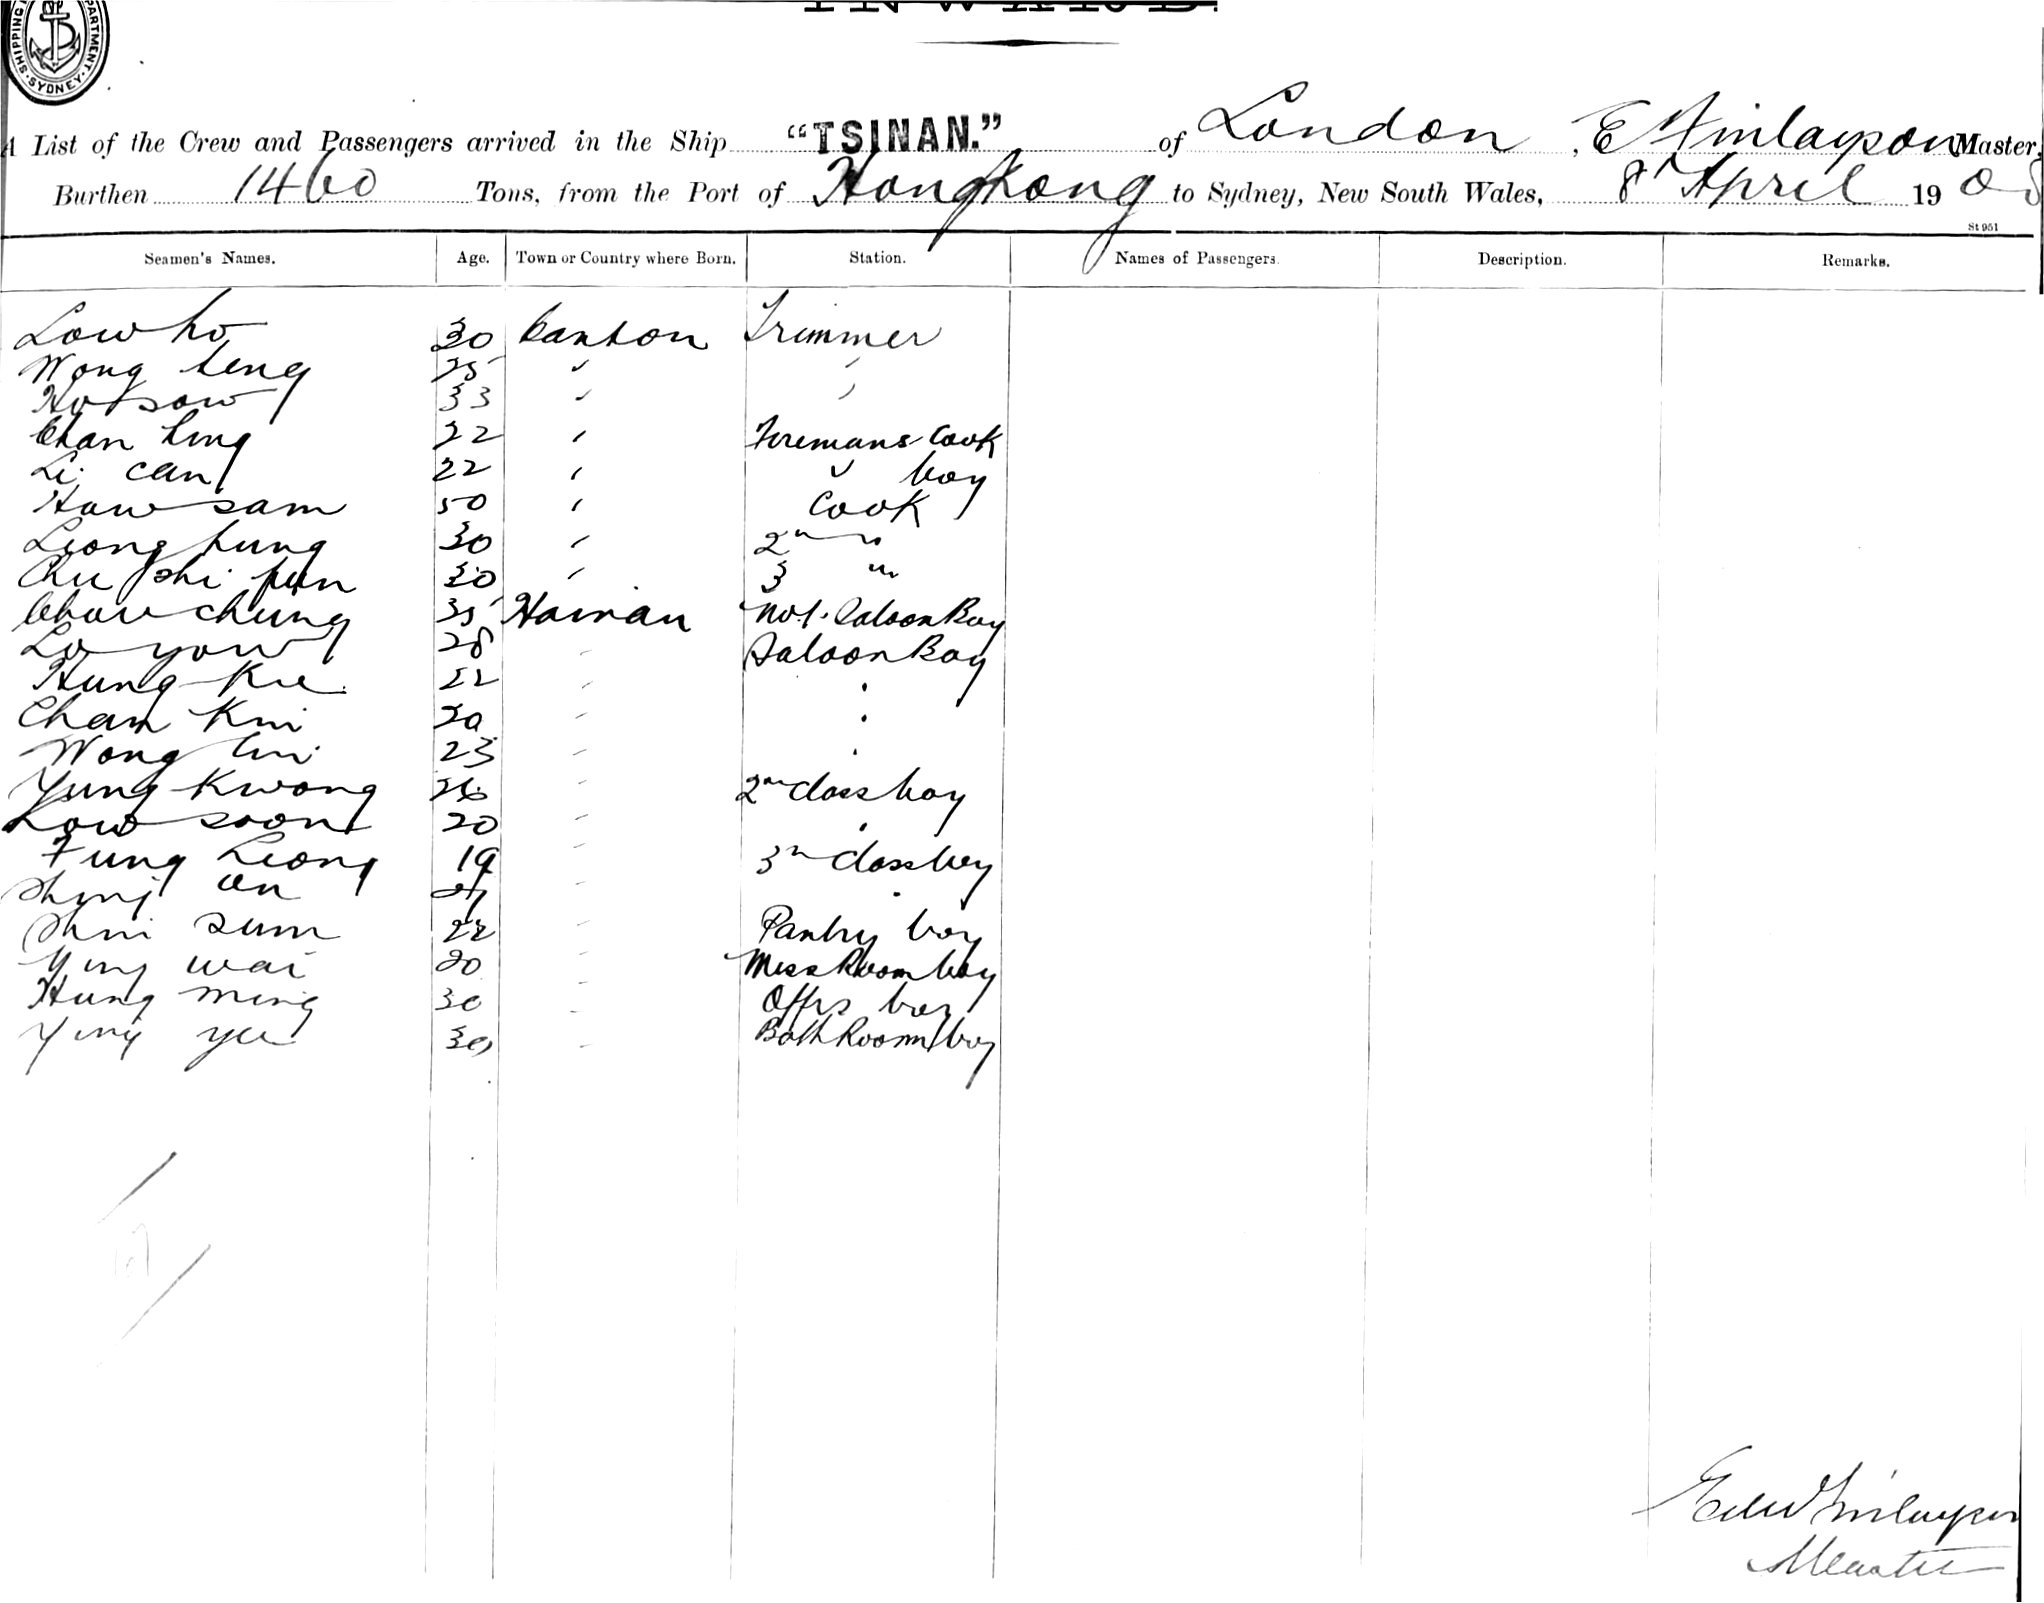 SHIPPING DEPARTMENT SYDNEY
INWARD.
A List of the Crew and Passengers arrived in the Ship "TSINAN." of London, E Finlayson Master,
Burthen 1460 Tons, from the Port of Hong Kong to Sydney, New South Wales, 8 April 190
St 951
Seamen's Names. Age. Town or Country where Born. Station. Names of Passengers. Description. Remarks.
Low ho 30 Canton Trimmer
Wong seng 25 " "
Ho sow 33 " "
Chan hing 22 " Firemans Cook
Li can 22 " " boy
How sam 50 " Cook
Leong hung 30 " 2nd "
Chu shi fun 30 " 3 "
Chow chung 35 Hainan No. 1. Saloon Boy
Lo yow 28 " Saloon Boy
Hung Kee 22 " "
Cham Kui " "
Wong 23 " "
Yung Kwong 26 " 2nd class boy
Low soon 20 " "
Fung Leong 19 " 3rd class boy
on " "
Shui sum 22 " Pantry boy
Ying wai 20 " Mess Room boy
Hung ming 30 " Offrs boy
Ying yee 30 " Bath Room boy
Edw Finlayson
Master